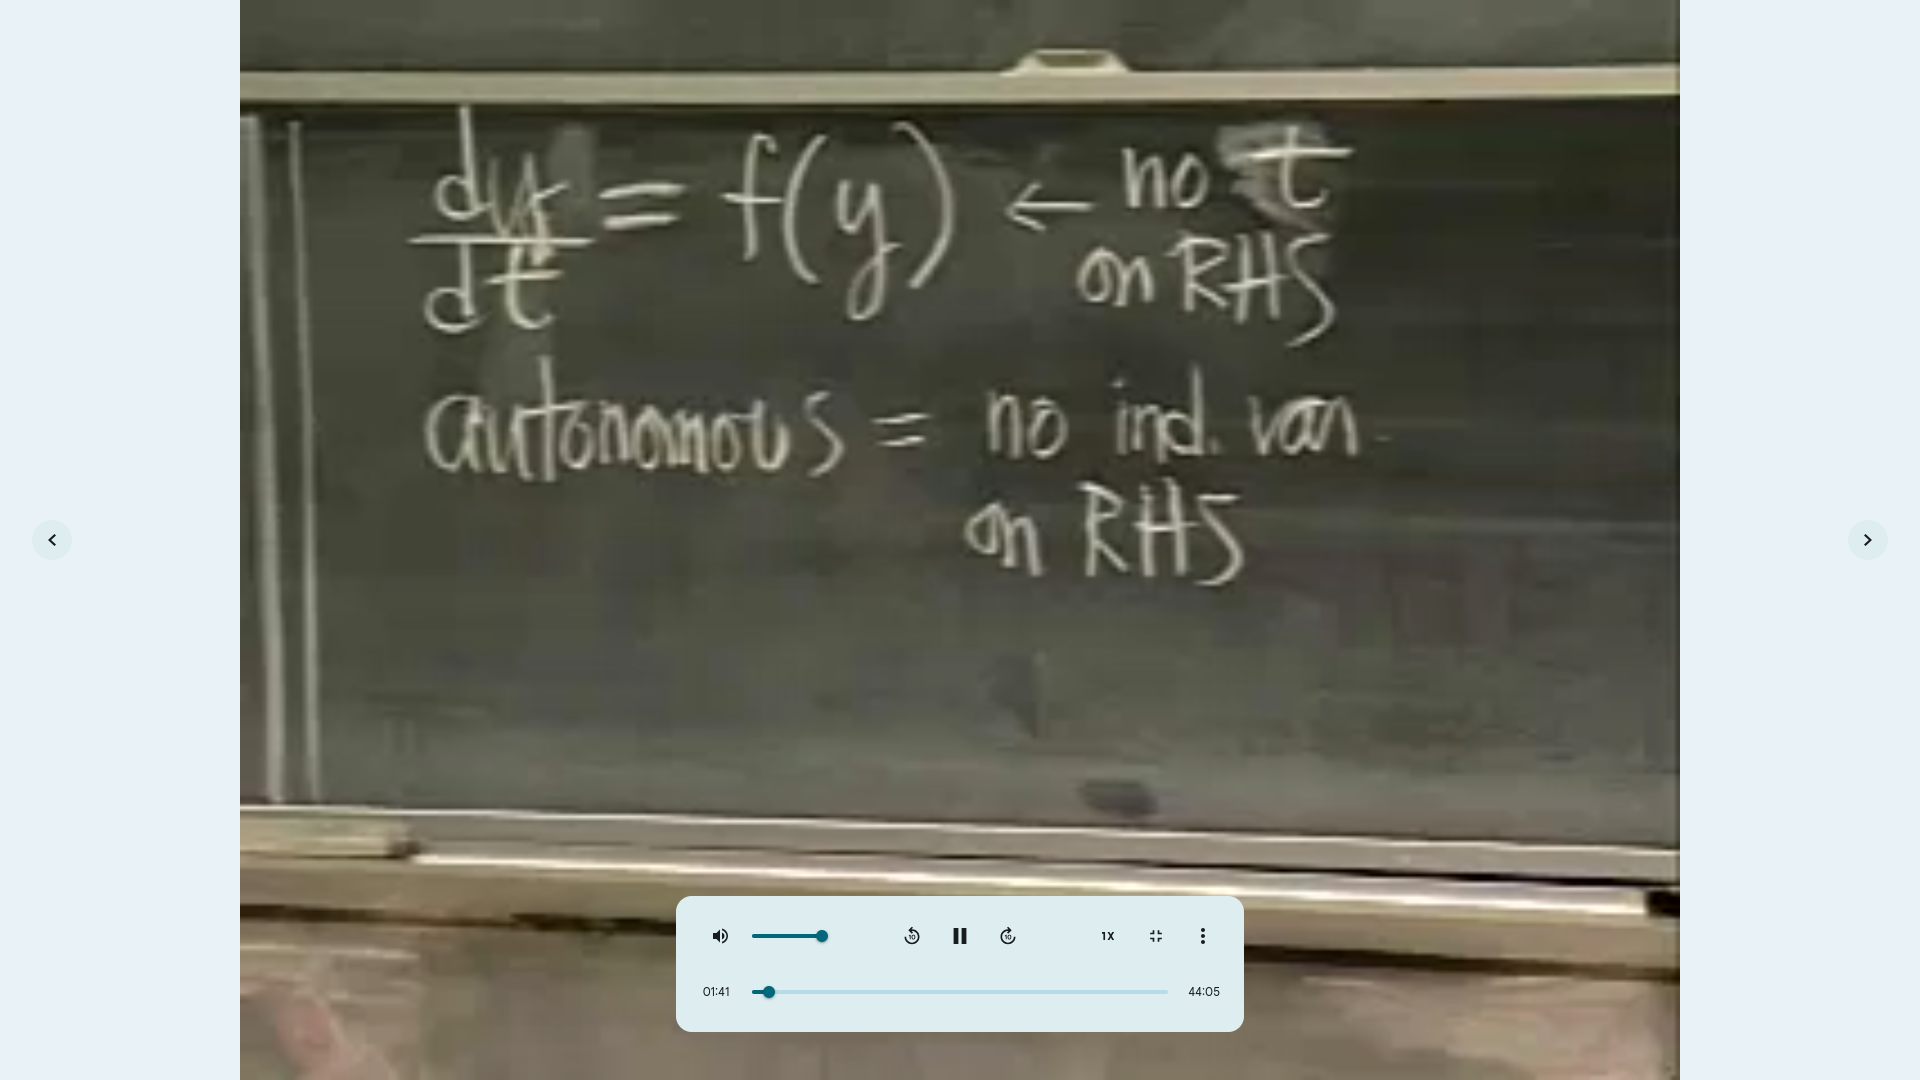 dy/dt = f(y) ← no t
on RHS
autonomous = no ind. var.
on RHS
1X
01:41 44:05